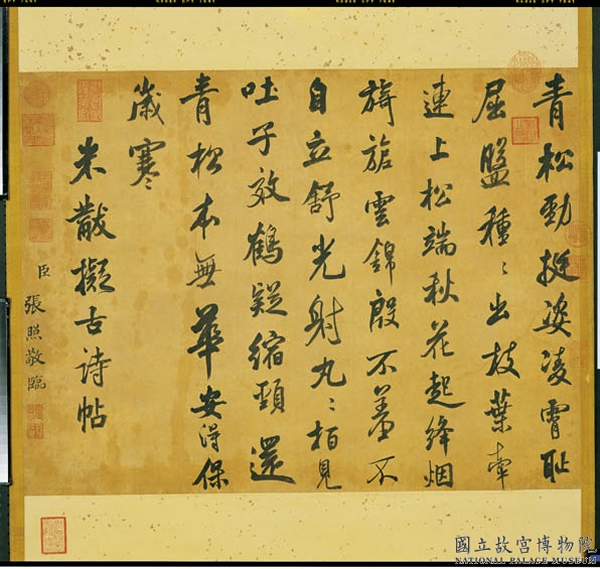 青松勁挺姿凌霄恥
屈盤種〻出枝葉牽
連上松端秋花起絳烟
旖旎雲錦殷不羞不
自立舒光射丸〻柏見
吐子效鶴疑縮頸還
青松本無華安得保
歲寒
米黻擬古詩帖
臣張照敬臨
國立故宮博物院
NATIONAL PALACE MUSEUM